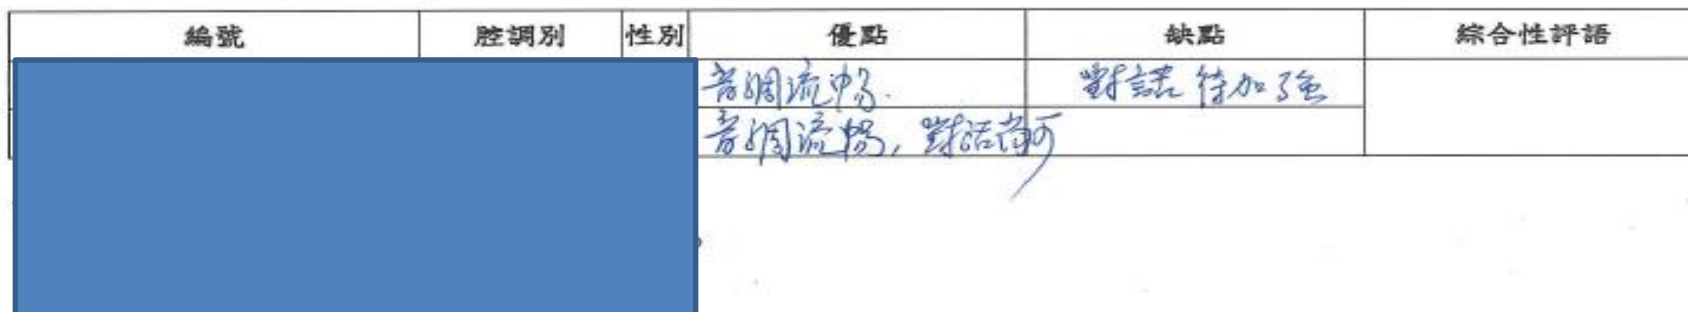 編號 腔調別 性別 優點 缺點 綜合性評語
音調流暢. 對話待加強
音調流暢,對話尚可